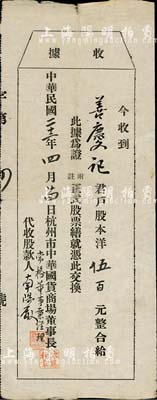 收據
今收到
善慶記君戶股本洋伍百元整合給
此據爲證
正式股票繕就憑此交換
中華民國二十三年四月 日杭州市中華國貨商場董事長
代收股款人
字第
號